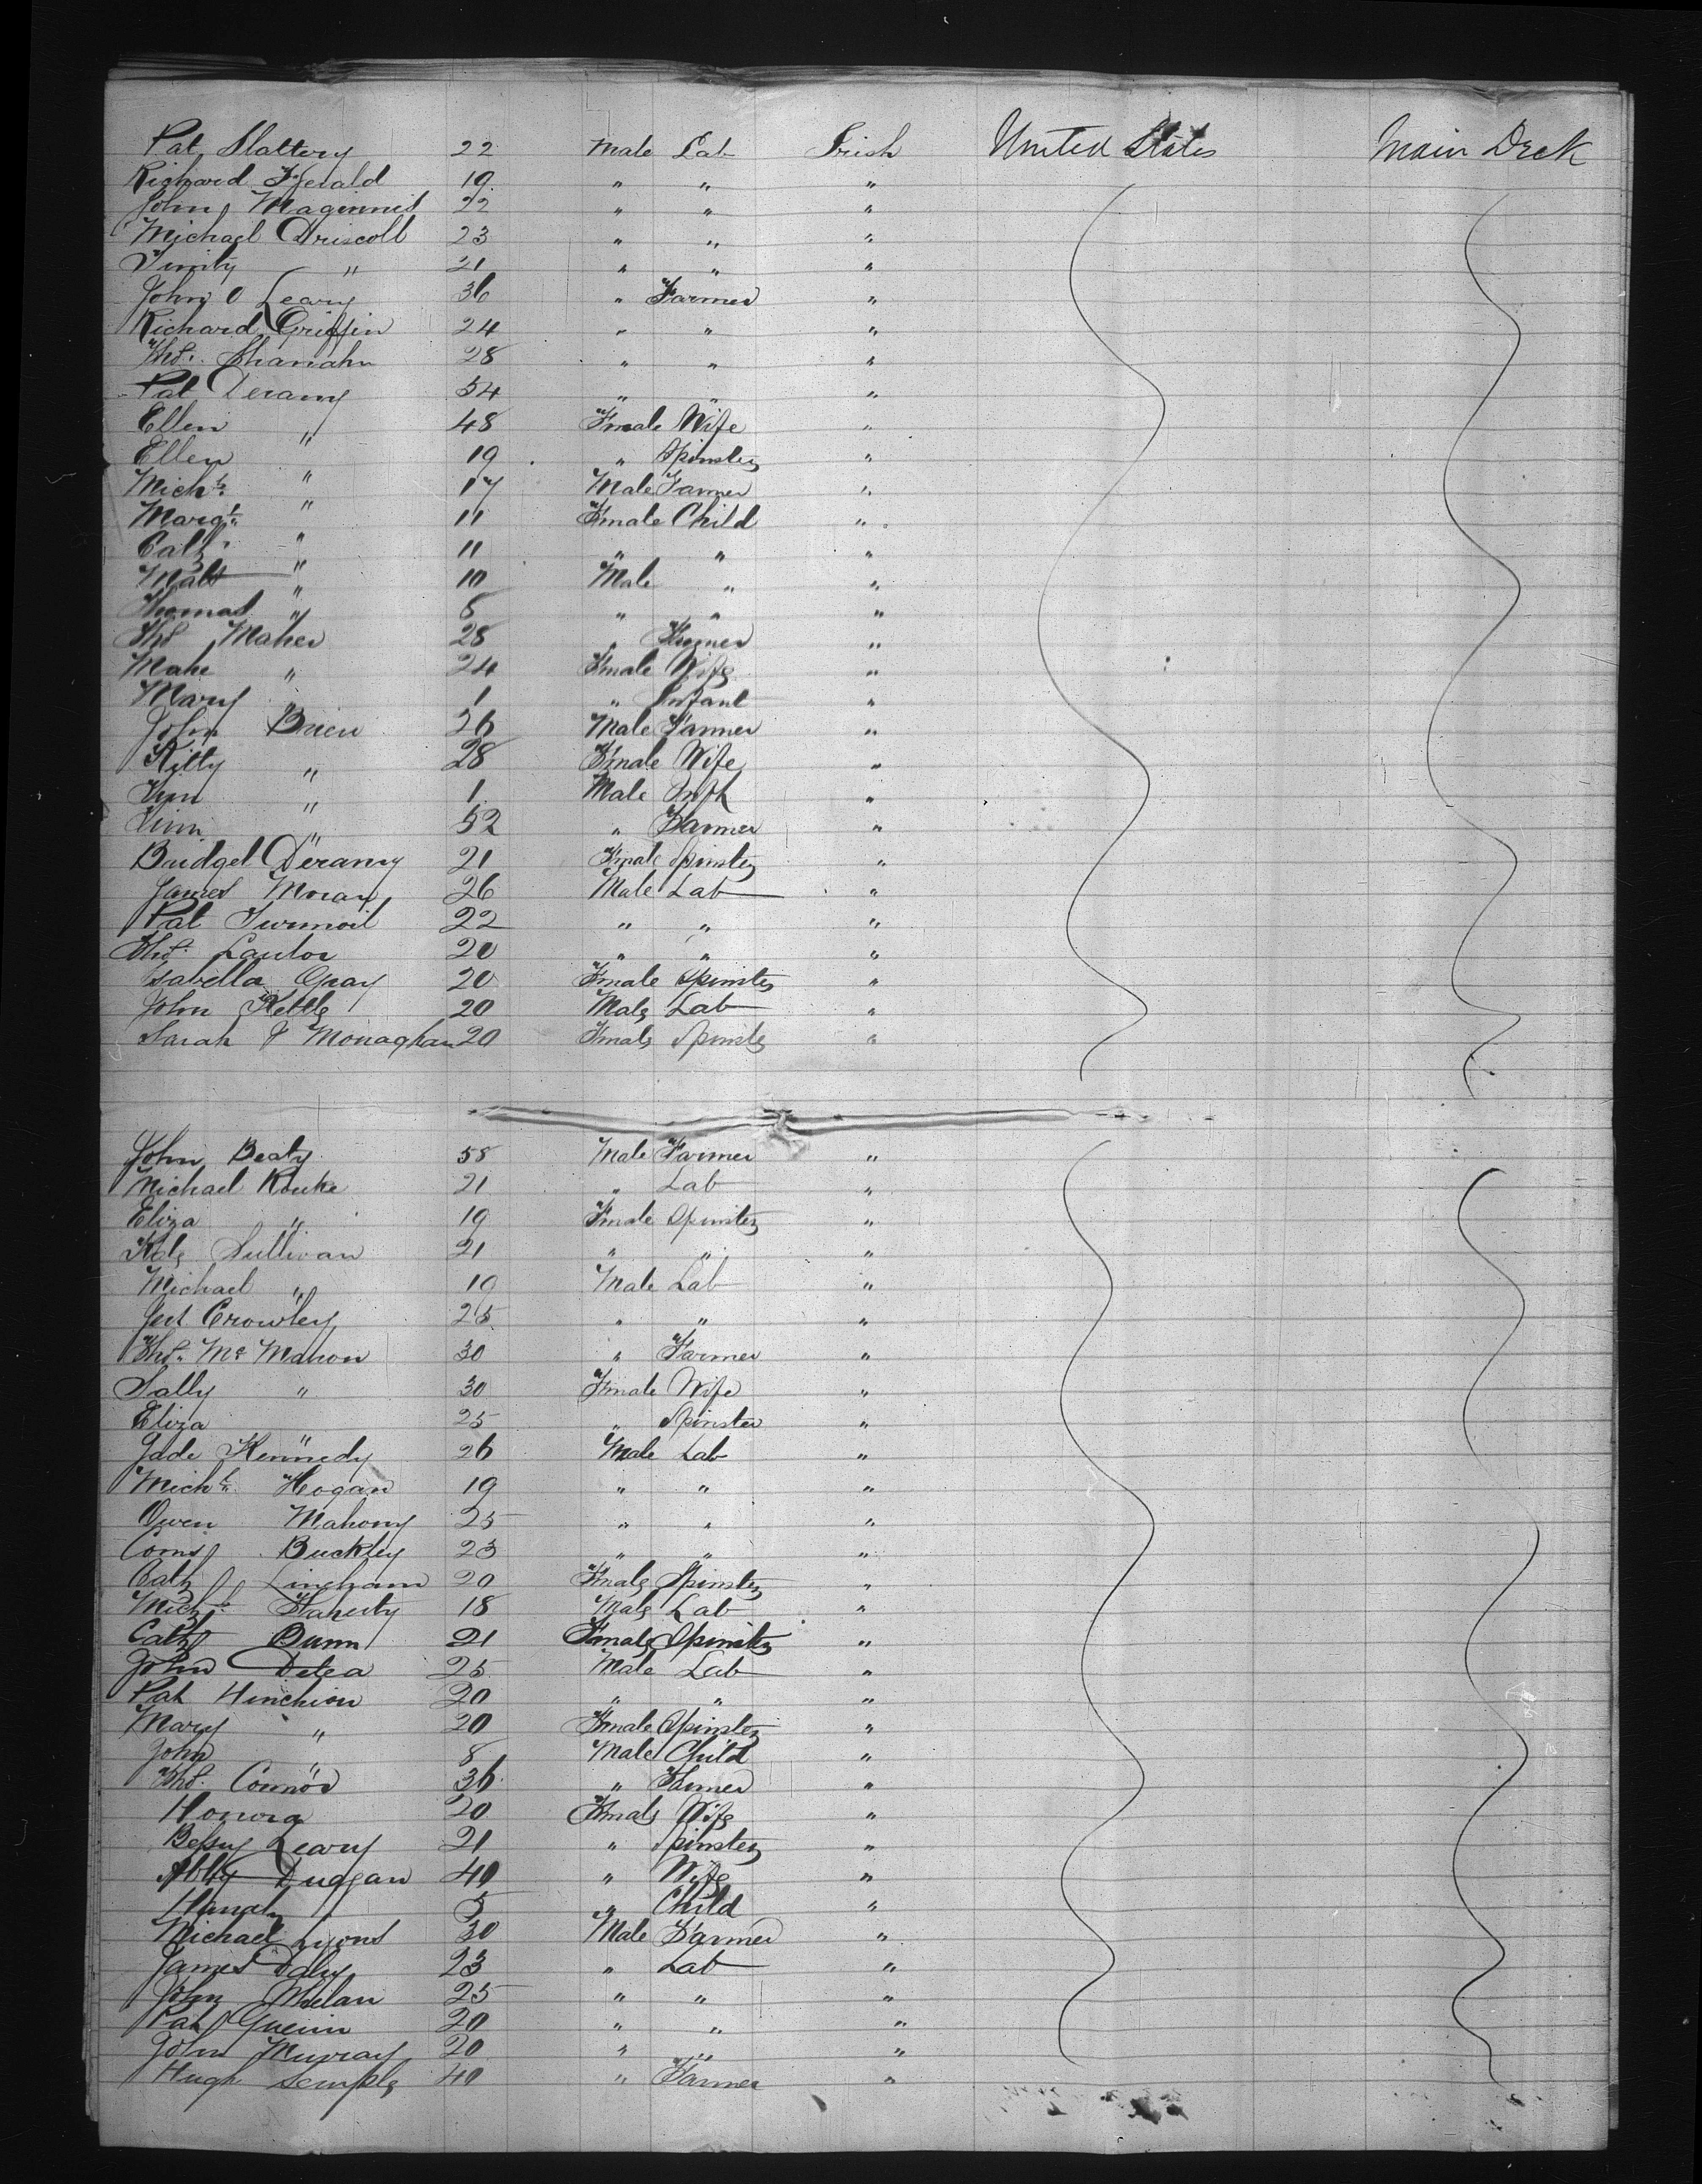 Pat Slattery 22 Male Lab Irish United States Main Deck
Richard FGerald 19 " " "
John Maginnis 22 " " "
Michael Driscoll 23 " " "
Timity " 21 " " "
John O Leary 36 " Farmer "
Richard Griffin 24 " " "
Thos. Shanahn 28 " " "
Pat Derany 54 " " "
Ellen " 48 Fmale Wife "
Ellen " 19 " Spinster "
Michl. " 17 Male Farmer "
Margt. " 11 Fmale Child "
Cath " 11 " " "
Matt " 10 Male " "
Thomas " 8 " " "
Thos Maher 28 " Farmer "
" 24 Fmale Wife "
Mary 1 " Infant "
John Brien 26 Male Farmer "
Kitty " 28 Fmale Wife "
" 1 Male Inft "
" 52 " Farmer "
Bridget Derany 21 Fmale Spinster "
James Moran 26 Male Lab "
Pat 22 " " "
Thos. Lawlor 20 " " "
Isabella Gray 20 Fmale Spinster "
John Kettle 20 Male Lab "
Sarah J Monaghan 20 Fmale Spinster "
John Beaty 58 Male Farmer "
Michael Rourke 21 " Lab "
Eliza " 19 Fmale Spinster "
Kate Sullivan 21 " " "
Michael " 19 Male Lab "
Crowley 25 " " "
Thos. Mc Mahon 30 " Farmer "
Sally " 30 Fmale Wife "
Eliza " 25 " Spinster "
Kennedy 26 Male Lab "
Michl. Hogan 19 " " "
Owen Mahony 25 " " "
Corns Buckley 23 " " "
Cath Lincham 20 Fmale Spinster "
Michl. Flaherty 18 Male Lab "
Cath Dunn 21 Fmale Spinster "
John Delea 25 Male Lab "
Pat Hinchion 20 " " "
Mary " 20 Fmale Spinster "
John " 8 Male Child "
Thos. Connor 36 " Farmer "
Honora 20 Fmale Wife "
Bessy Leary 21 " Spinster "
Abby Duggan 40 " Wife "
Hanah " 5 " Child "
Michael Lyons 30 Male Farmer "
James Daly 23 " Lab "
John Whelan 25 " " "
Pat Guerin 20 " " "
John Murray 20 " " "
Hugh Semple 40 " Farmer "